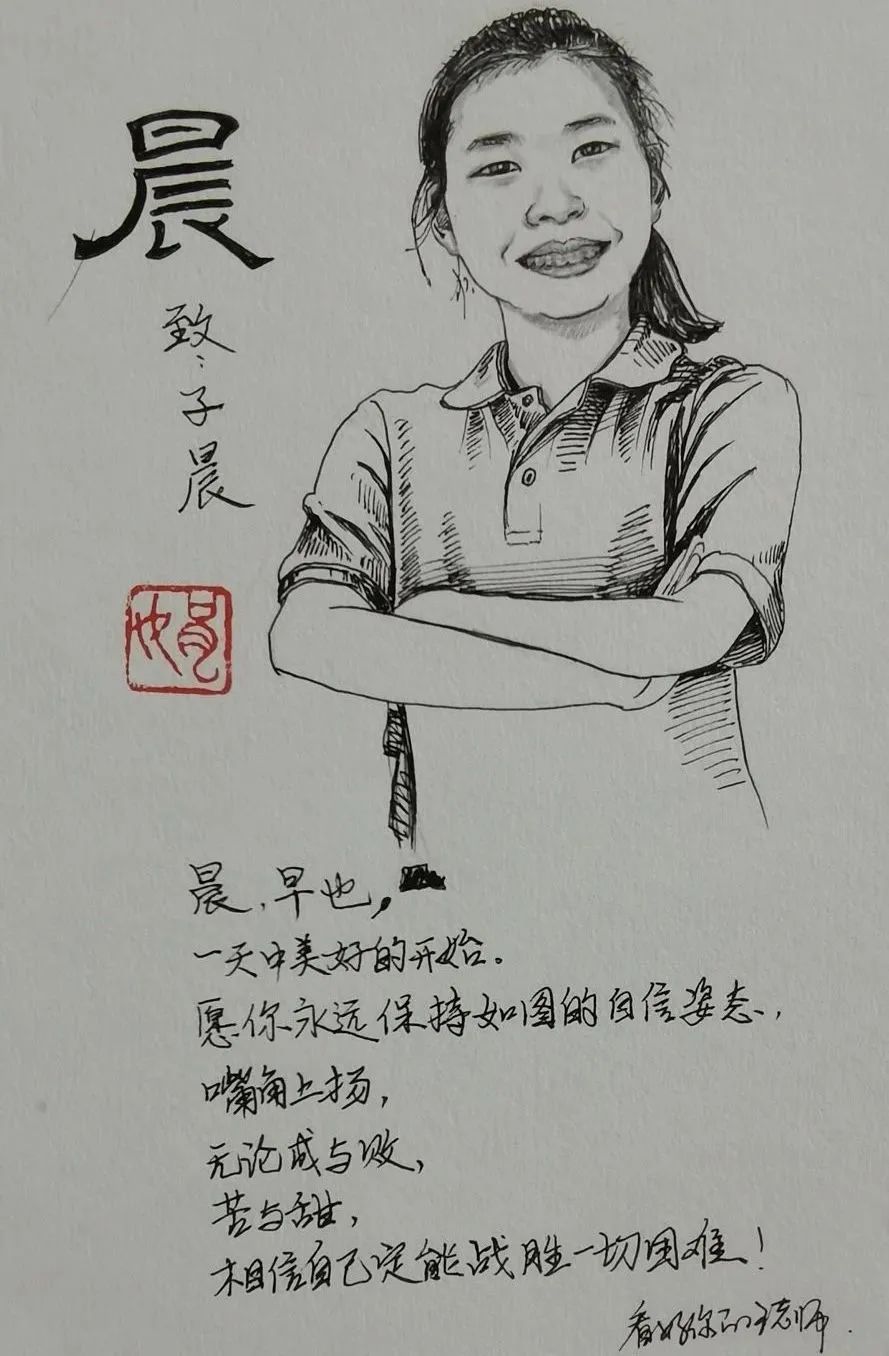 晨
致:子晨
晨,早也,
一天中美好的开始。
愿你永远保持如图的自信姿态,
嘴角上扬,
无论成与败,
苦与甜,
相信自己定能战胜一切困难!
看好你的王老师.